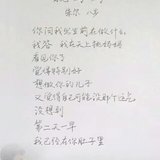 朱尔 八岁
你问我出生前在做什么
我答 我在天上挑妈妈
看见你了
觉得特别好
想做你的儿子
又觉得自己可能没那个运气
没想到
第二天一早
我已经在你肚子里